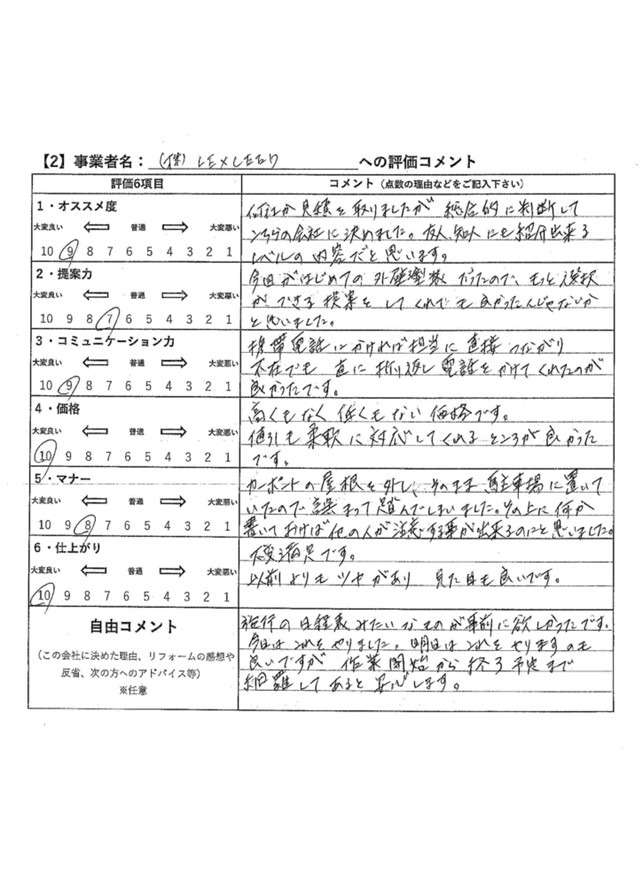 【2】事業者名: (株) LEXLEED への評価コメント
評価6項目
コメント（点数の理由などをご記入下さい）
1・オススメ度
大変良い 普通 大変悪い
10 9 8 7 6 5 4 3 2 1
何社か見積を取りましたが 総合的に判断して
こちらの会社に決めました。友人、知人にも紹介出来る
レベルの内容だと思います。
2・提案力
大変良い 普通 大変悪い
10 9 8 7 6 5 4 3 2 1
今回がはじめての外壁塗装だったので、もっと選択
ができる提案をしてくれても良かったんじゃないか
と思いました。
3・コミュニケーション力
大変良い 普通 大変悪い
10 9 8 7 6 5 4 3 2 1
携帯電話にかければ担当に直接つながり
不在でも 直に折り返し電話をかけてくれたのが
良かったです。
4・価格
大変良い 普通 大変悪い
10 9 8 7 6 5 4 3 2 1
高くもなく低くもない価格です。
値引も柔軟に対応してくれるところが良かった
です。
5・マナー
大変良い 普通 大変悪い
10 9 8 7 6 5 4 3 2 1
カーポートの屋根を外し、そのまま駐車場に置いて
いたので誤まって踏んでしまいました。その上に何か
書いておけば他の人が注意する事が出来るのにと思いました。
6・仕上がり
大変良い 普通 大変悪い
10 9 8 7 6 5 4 3 2 1
大変満足です。
以前よりもツヤがあり 見た目も良いです。
自由コメント
（この会社に決めた理由、リフォームの感想や
反省、次の方へのアドバイス等）
※任意
施行の日程表みたいなものが事前に欲しかったです。
今日はこれをやりました。明日はこれをやりますのも
良いですが 作業開始から終了予定まで
網羅してあると安心します。